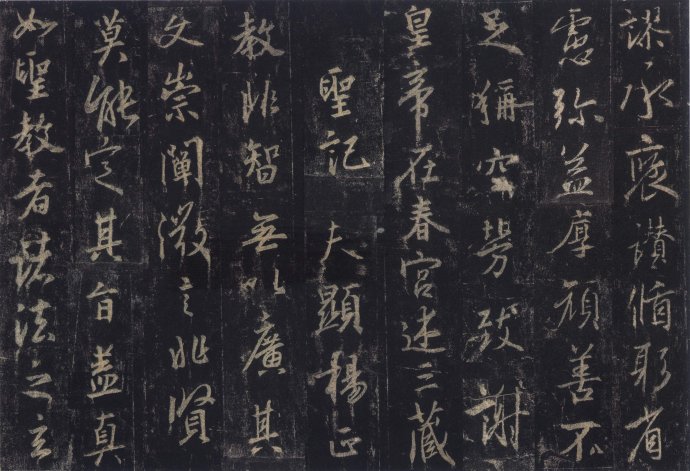 謬承褒讚脩躬省
慮弥益厚顔善不
足稱空勞致謝
皇帝在春宮述三藏
聖記 夫顯楊正
教非智無以廣其
文崇闡微言非賢
莫能定其旨盖真
如聖教者諸法之玄